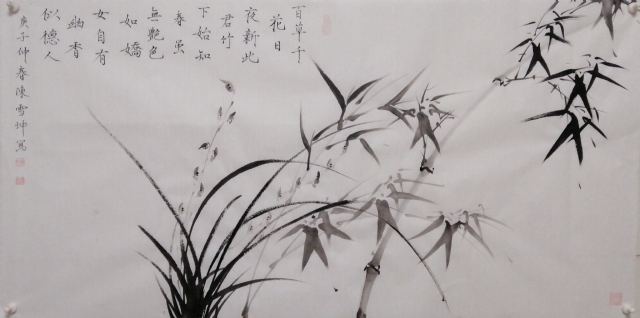 百草千
花日
夜新此
君竹
下始知
春虽
無艷色
如嬌
女自有
幽香
似德人
庚子仲春陳雪坤寫